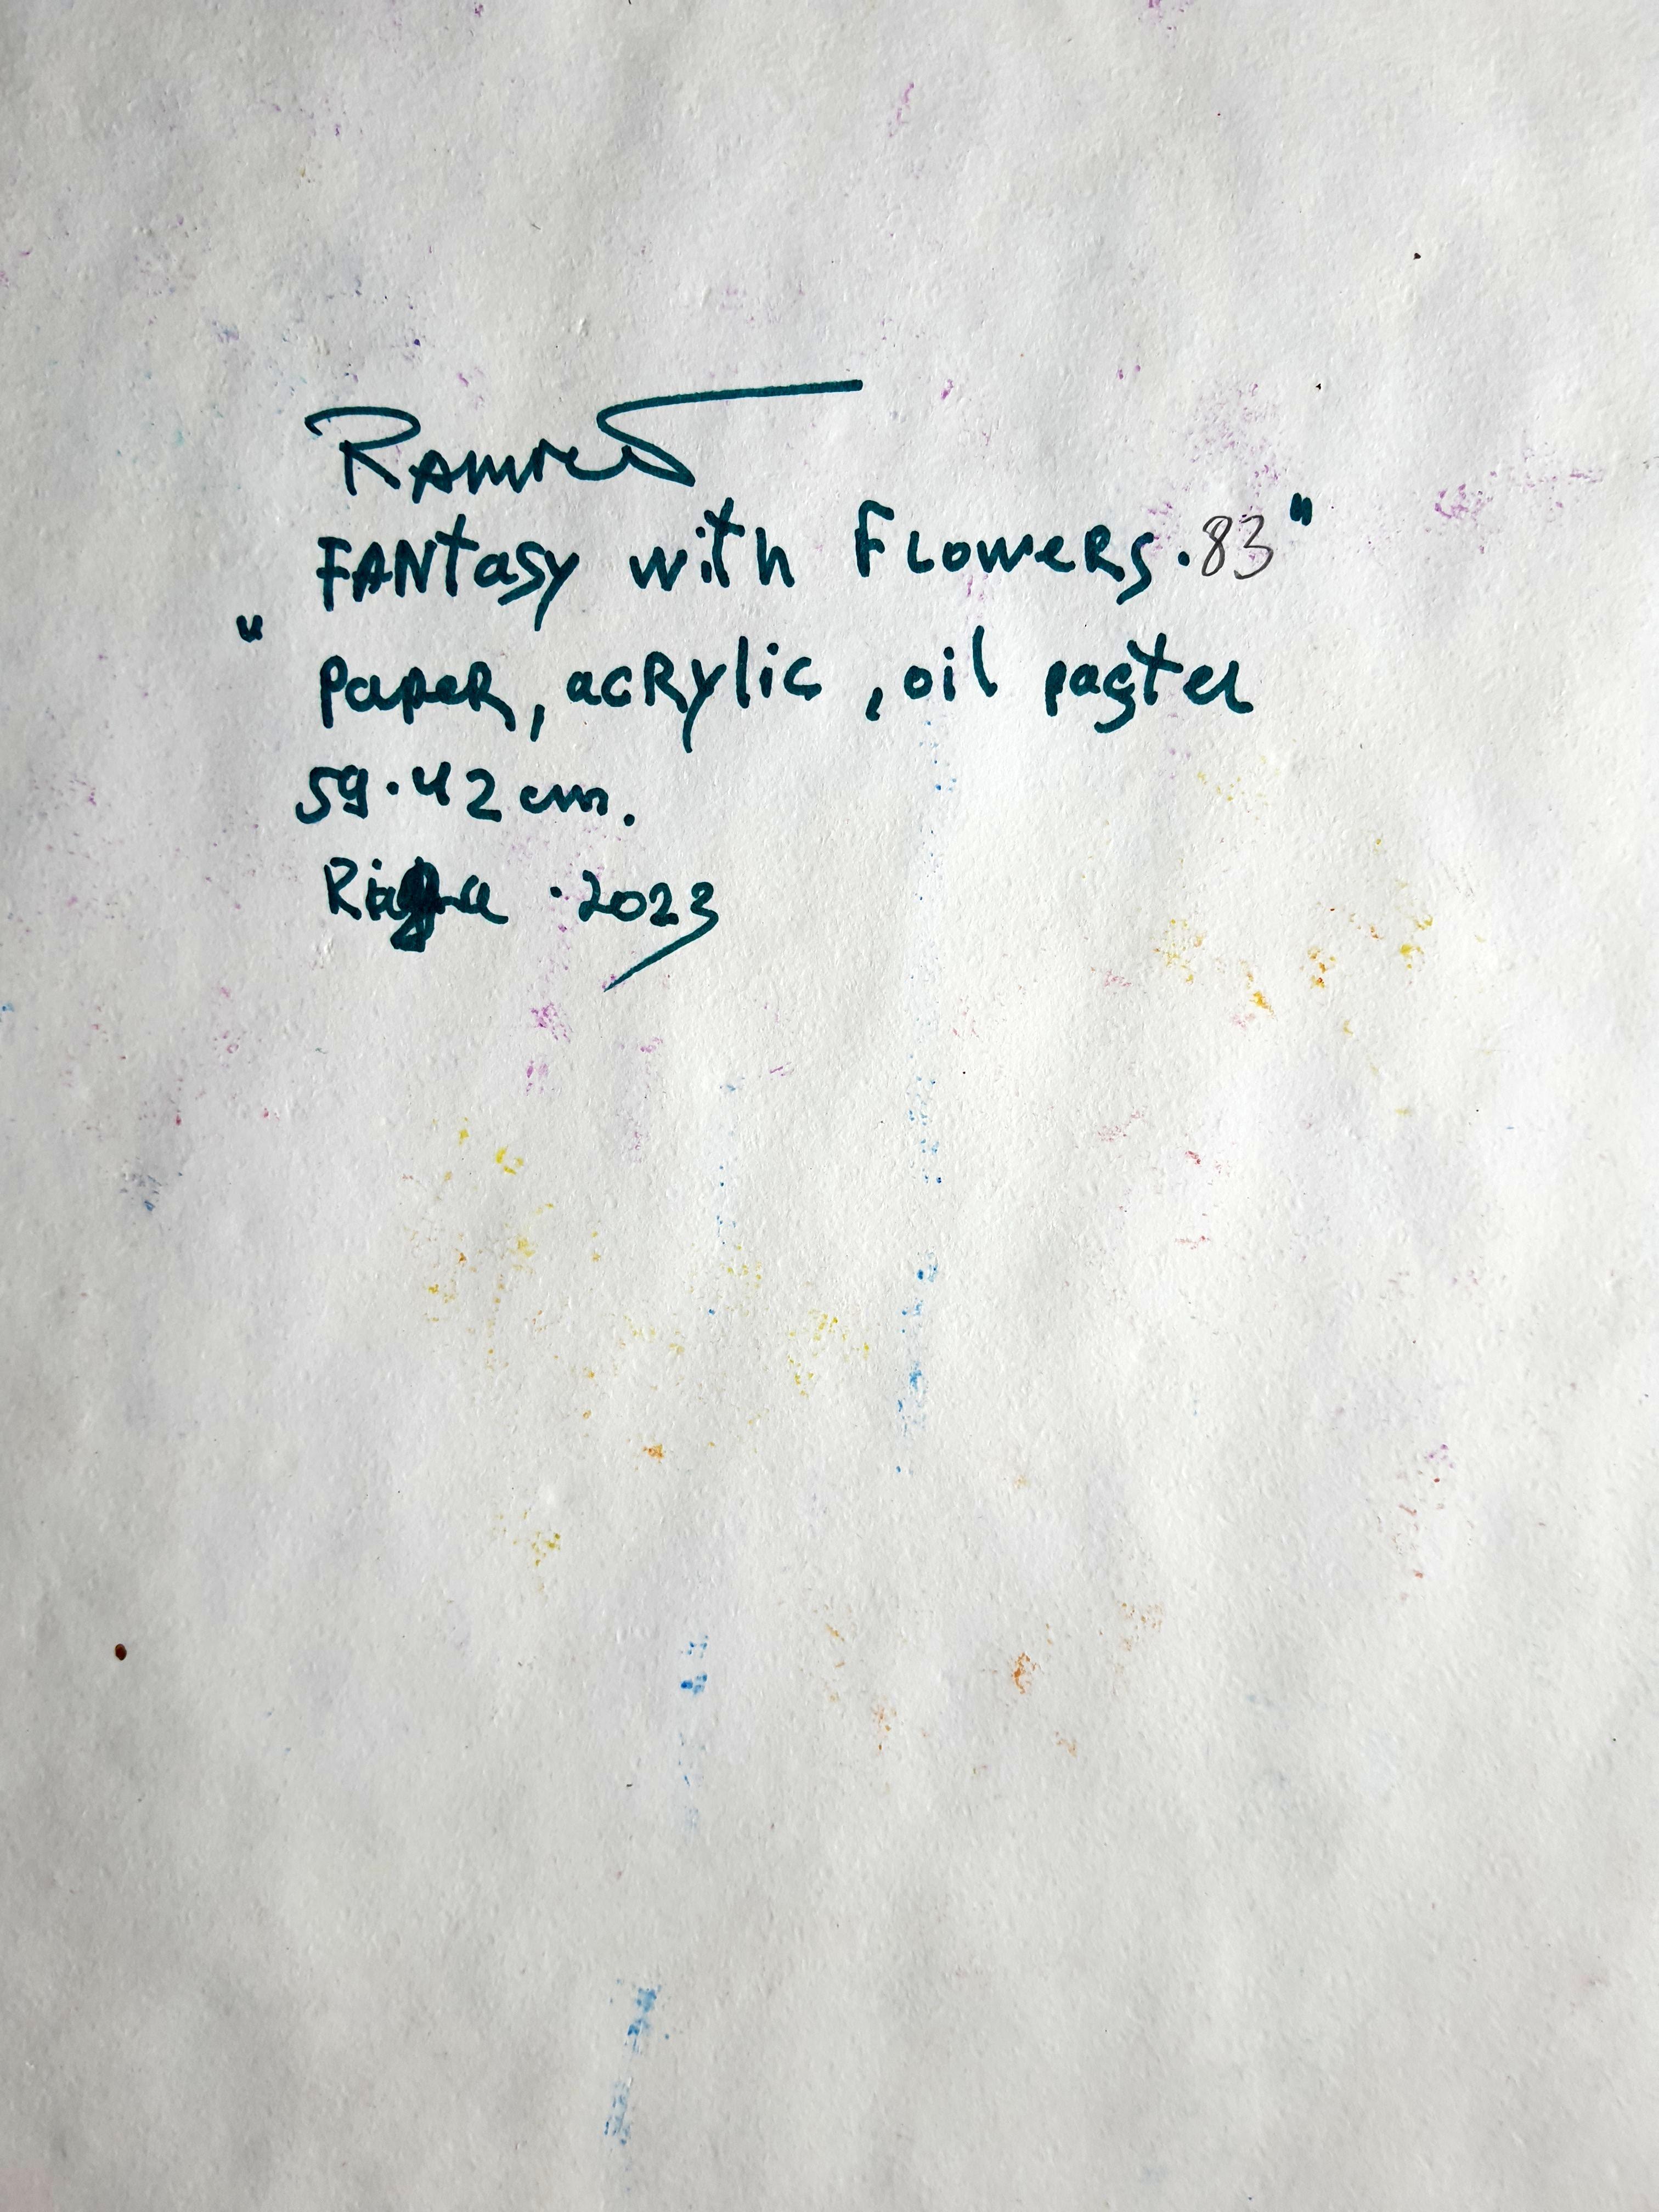 FANtasy with FLoweRs.83"
" PapeR, acRylic, oil pastel
59.42 cm.
Riga .2023